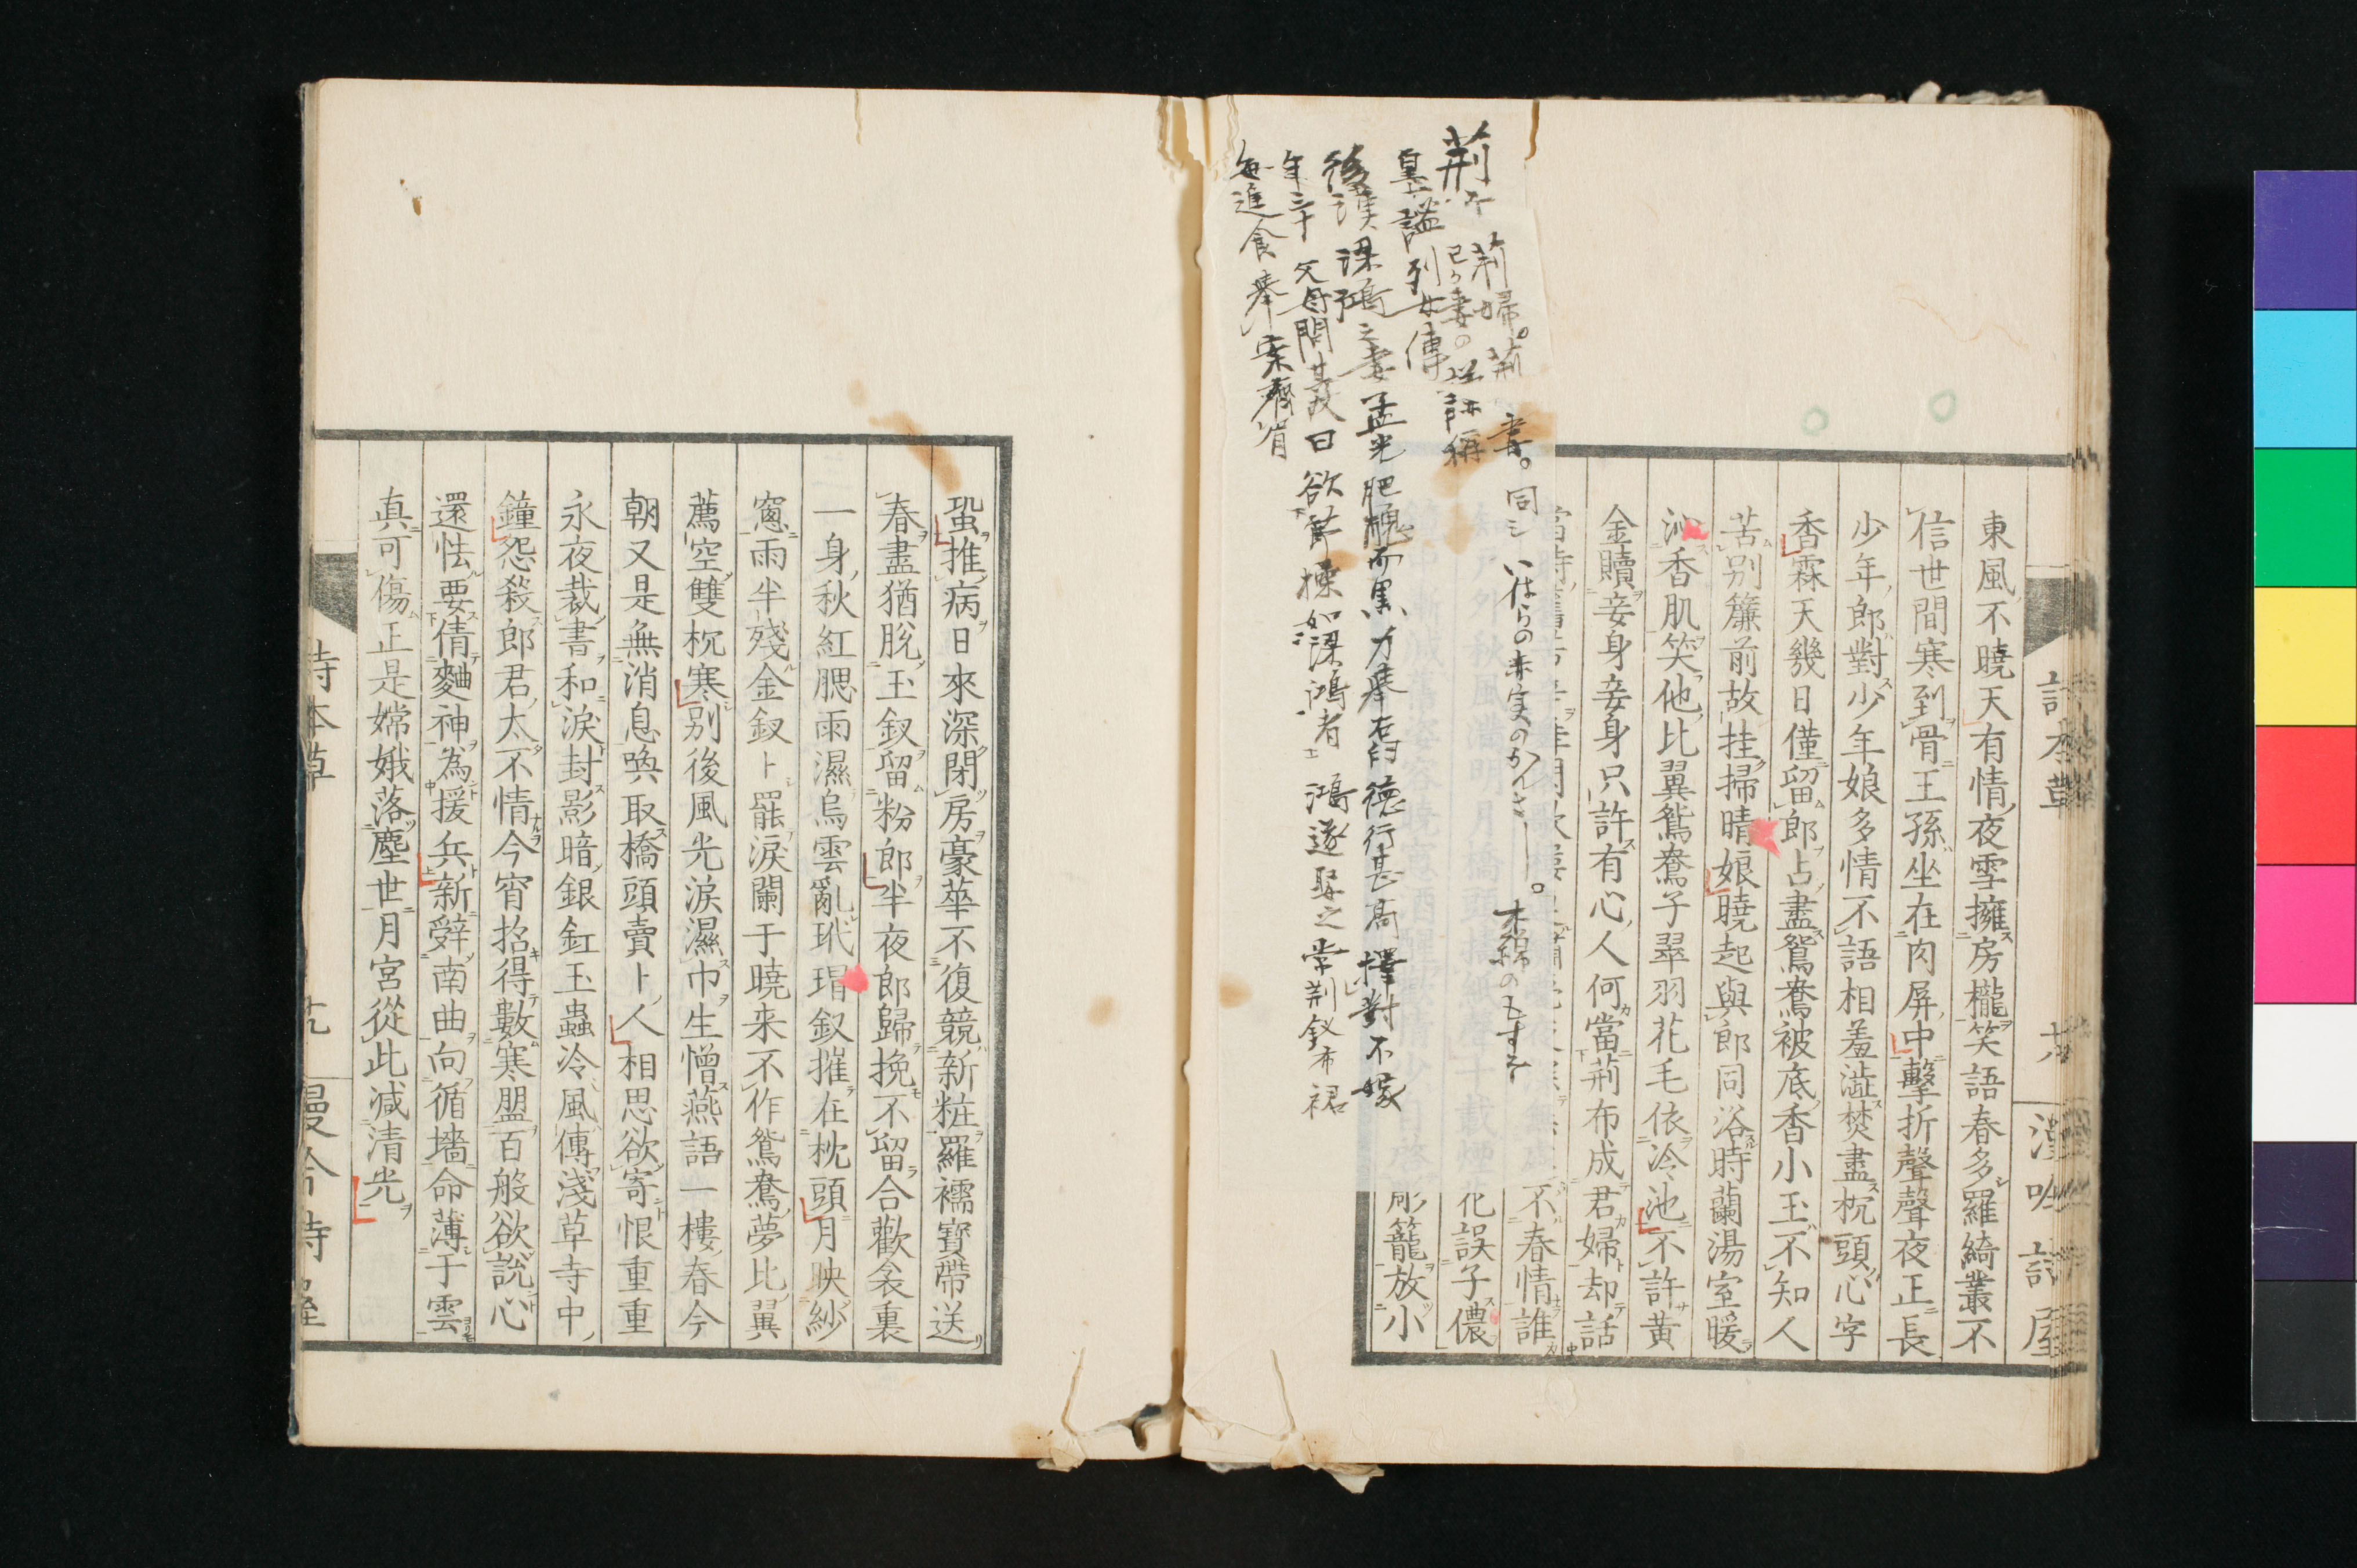 東風不曉天有情夜雪擁房櫳笑語春多羅綺叢不
信世間寒到骨王孫坐在肉屏中擊折聲聲夜正長
少年郎對少年娘多情不語相羞澁焚盡枕頭心字
香霖天幾日僅留郎占盡鴛鴦被底香小玉不知人
苦別簾前故挂掃晴娘曉起與郎同浴時蘭湯室暖
沁香肌笑他比翼鴛鴦子翠羽花毛依冷池不許黃
金贖妾身妾身只許有心人何當荊布成君婦却話
不春情誰
化誤子儂
彫籠放小
荊 荊婦。荊妻。同シ いばらの赤実のかんざし。木綿のもすそ
己ガ妻の謙称
皇謐列女傳
後漢梁鴻之妻孟光肥醜而黒力舉石臼德行甚高擇對不嫁
年三十父母問其故曰欲節操如梁鴻者鴻遂娶之常荊釵布裙
每進食舉案齊眉
蛩推病日來深閉房豪華不復競新粧羅襦寶帶送
春盡猶脫玉釵留粉郎半夜郎歸挽不留合歡衾裏
一身秋紅腮雨濕烏雲亂玳瑁釵摧在枕頭月映紗
窻雨半殘金釵卜罷淚闌于曉来不作鴛鴦夢比翼
薦空雙枕寒別後風光淚濕巾生憎燕語一樓春今
朝又是無消息喚取橋頭賣卜人相思欲寄恨重重
永夜裁書和淚封影暗銀釭玉蟲冷風傳淺草寺中
鐘怨殺郎君太不情今宵招得數寒盟百般欲說心
還怯要倩麯神為援兵新辤南曲向循墻命薄于雲
真可傷正是嫦娥落塵世月宮從此減清光